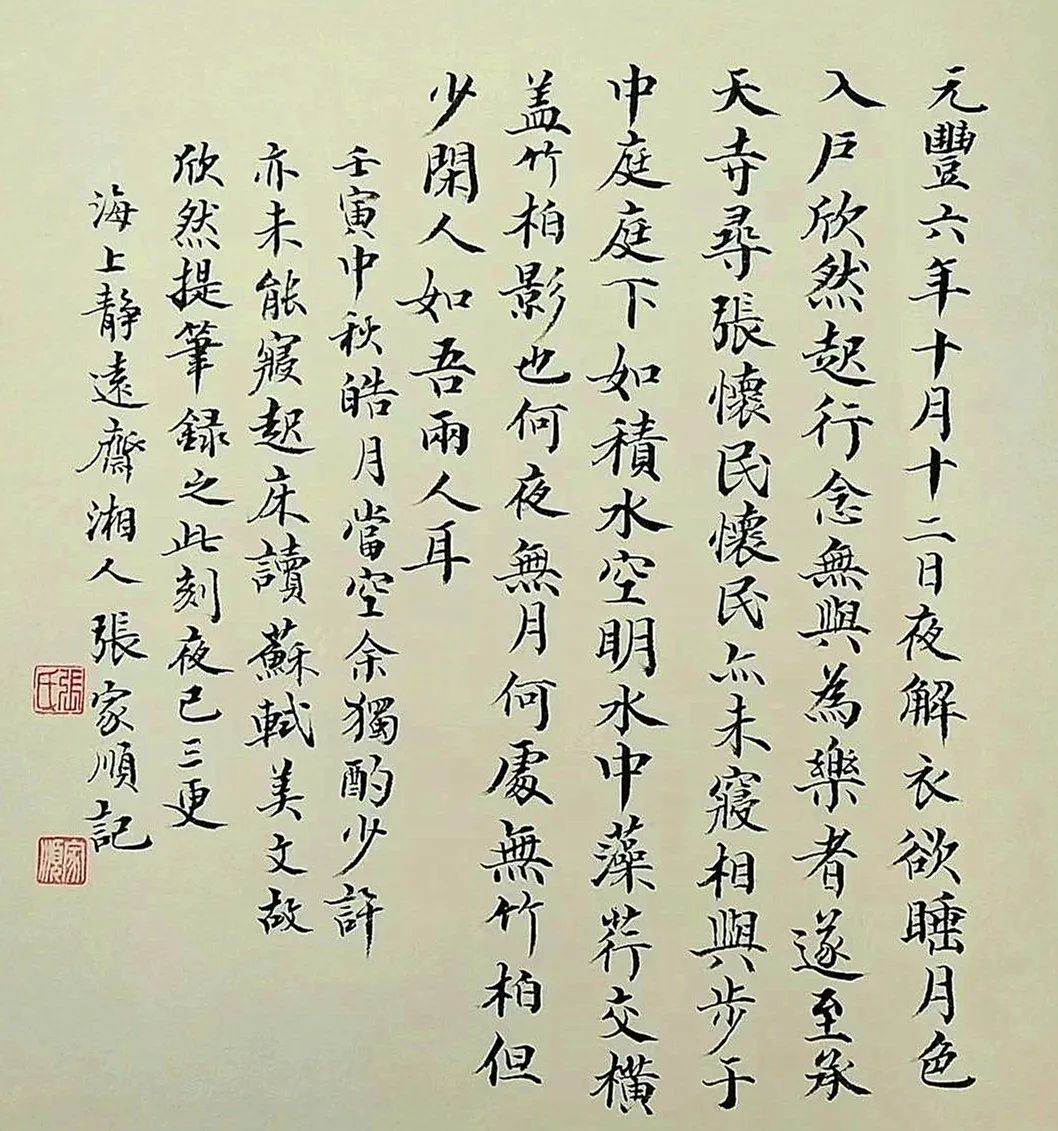 元豐六年十月十二日夜解衣欲睡月色
入戶欣然起行念無與為樂者遂至承
天寺尋張懷民懷民亦未寢相與步于
中庭庭下如積水空明水中藻荇交橫
盖竹柏影也何夜無月何處無竹柏但
少閑人如吾兩人耳
壬寅中秋皓月當空余獨酌少許
亦未能寢起床讀蘇軾美文故
欣然提筆録之此刻夜已三更
海上靜遠齋湘人張家順記
張氏
家順